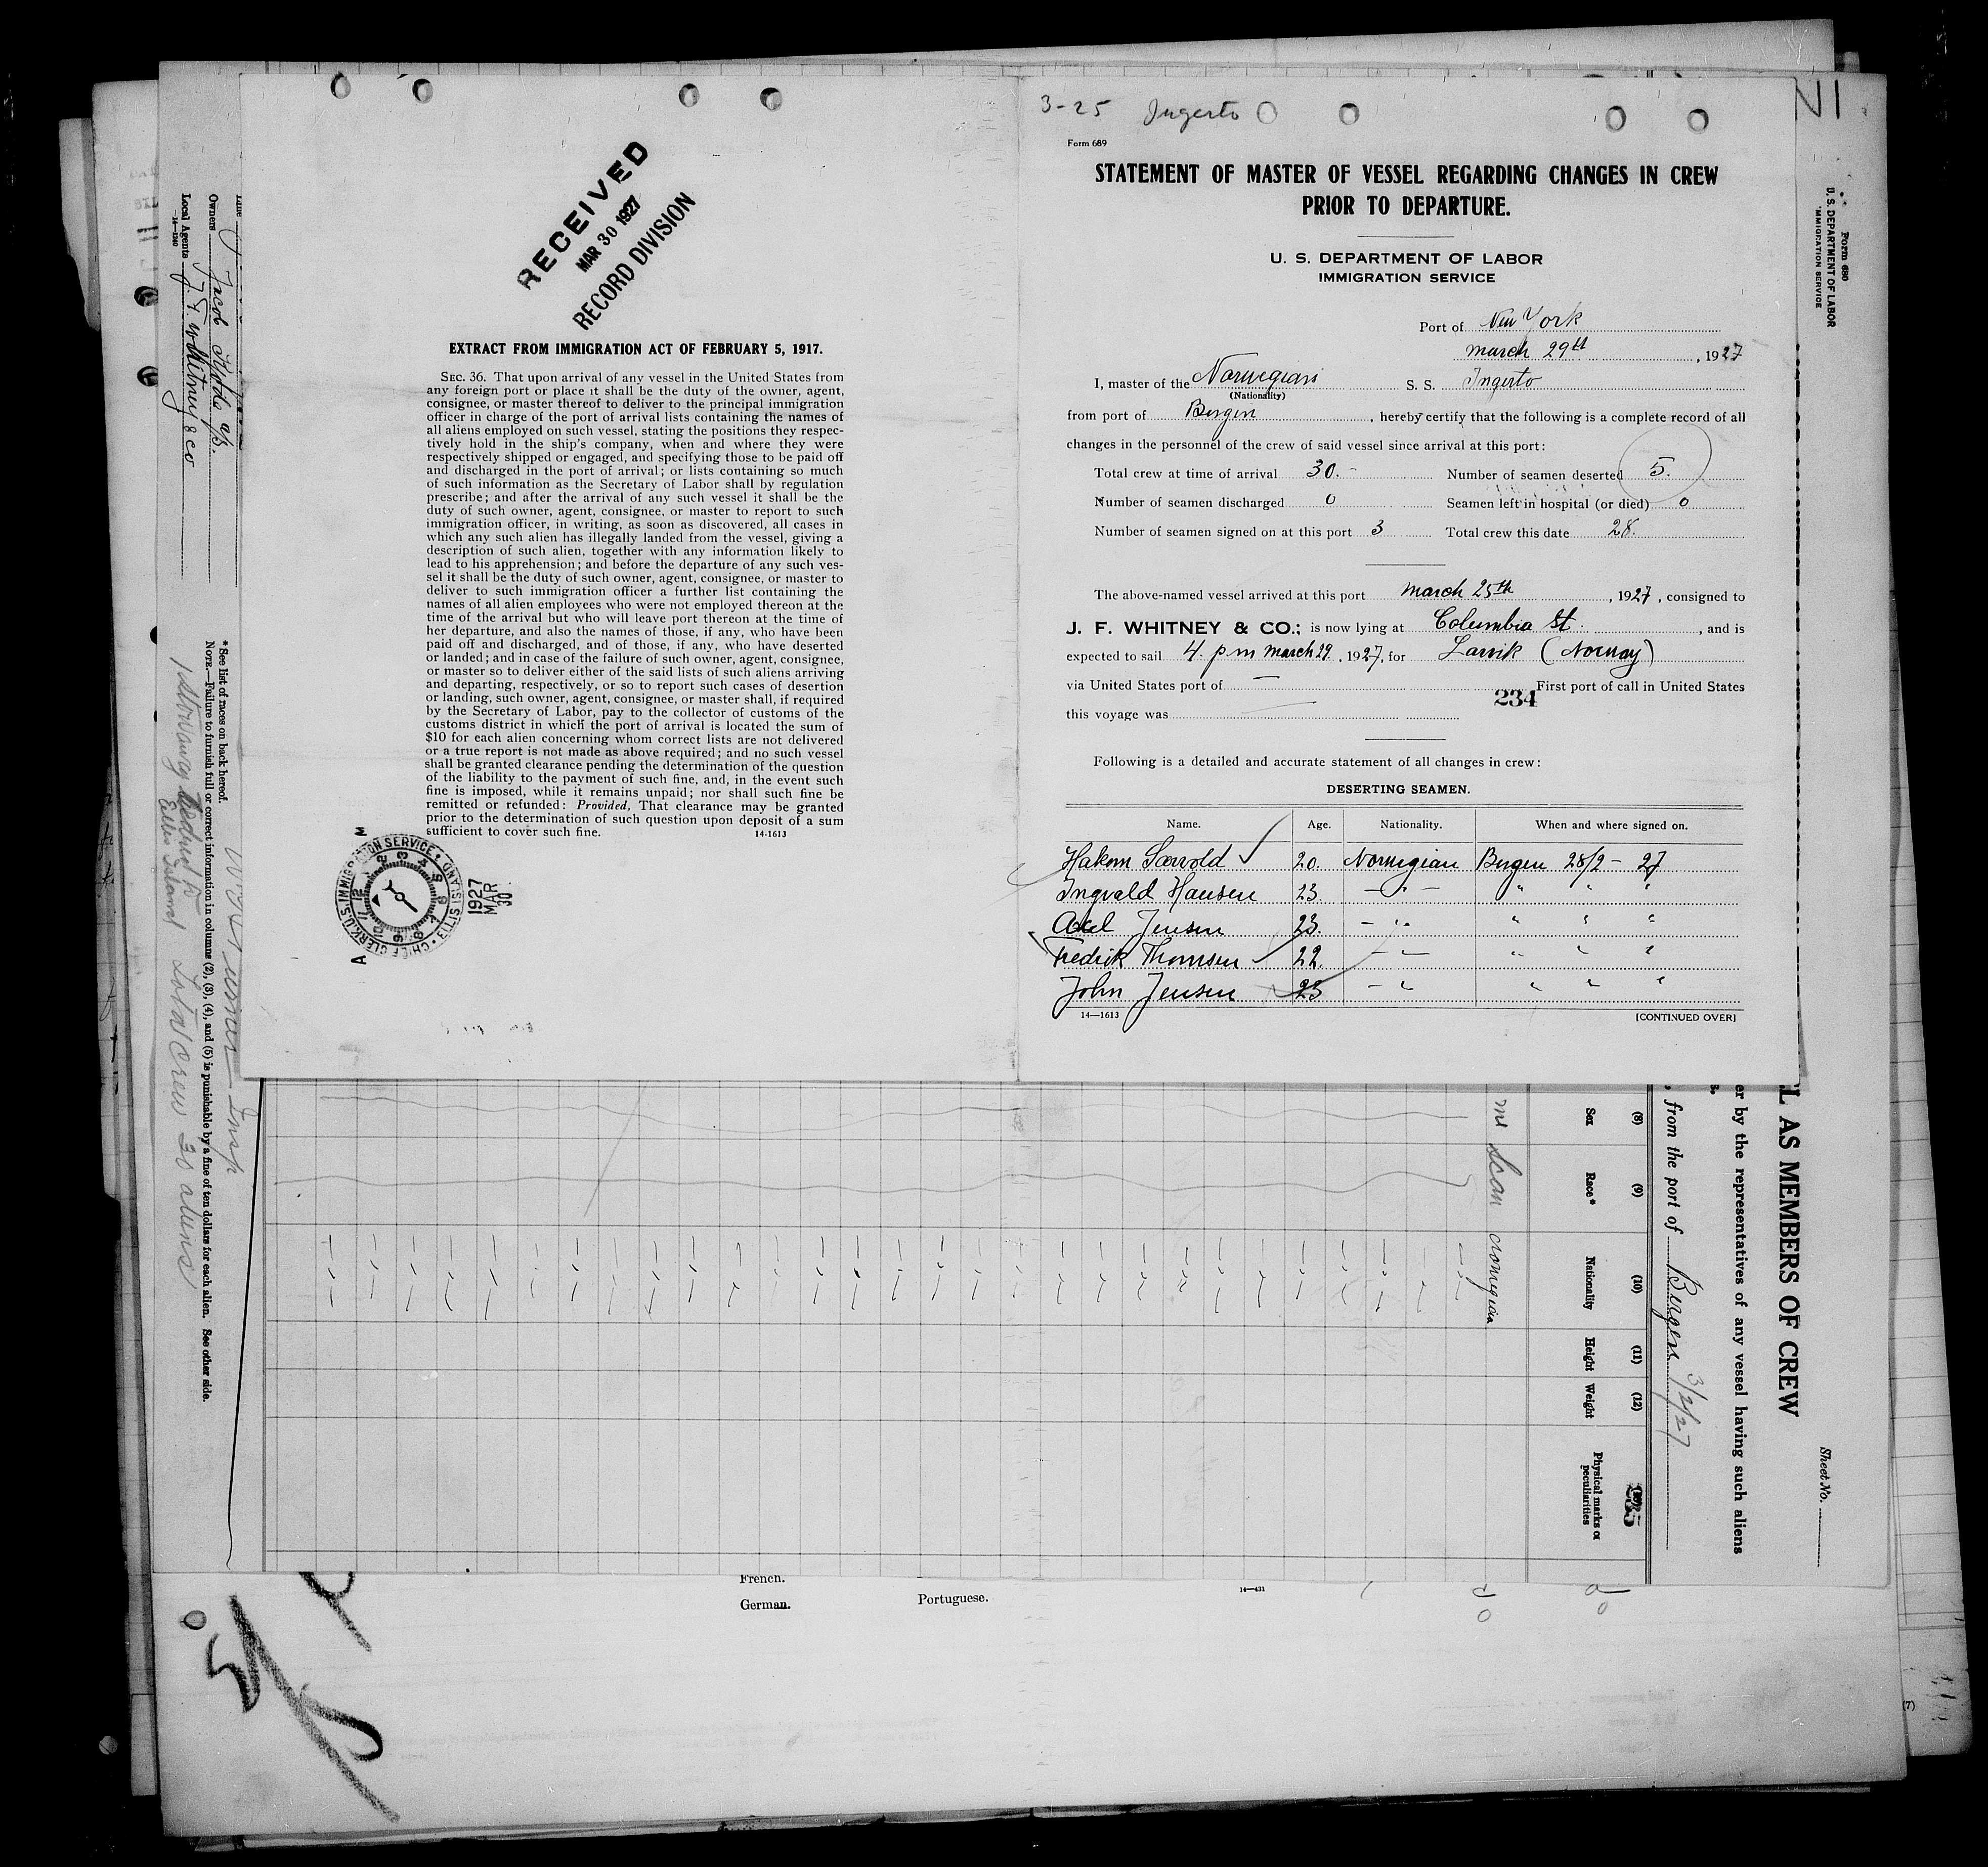 RECEIVED
MAR 30 1927
RECORD DIVISION
EXTRACT FROM IMMIGRATION ACT OF FEBRUARY 5, 1917.
SEC. 36. That upon arrival of any vessel in the United States from
any foreign port or place it shall be the duty of the owner, agent,
consignee, or master thereof to deliver to the principal immigration
officer in charge of the port of arrival lists containing the names of
all aliens employed on such vessel, stating the positions they respec-
tively hold in the ship's company, when and where they were
respectively shipped or engaged, and specifying those to be paid off
and discharged in the port of arrival; or lists containing so much
of such information as the Secretary of Labor shall by regulation
prescribe; and after the arrival of any such vessel it shall be the
duty of such owner, agent, consignee, or master to report to such
immigration officer, in writing, as soon as discovered, all cases in
which any such alien has illegally landed from the vessel, giving a
description of such alien, together with any information likely to
lead to his apprehension; and before the departure of any such ves-
sel it shall be the duty of such owner, agent, consignee, or master to
deliver to such immigration officer a further list containing the
names of all alien employees who were not employed thereon at the
time of the arrival but who will leave port thereon at the time of
her departure, and also the names of those, if any, who have been
paid off and discharged, and of those, if any, who have deserted
or landed; and in case of the failure of such owner, agent, consignee,
or master so to deliver either of the said lists of such aliens arriving
and departing, respectively, or so to report such cases of desertion
or landing, such owner, agent, consignee, or master shall, if required
by the Secretary of Labor, pay to the collector of customs of the
customs district in which the port of arrival is located the sum of
$10 for each alien concerning whom correct lists are not delivered
or a true report is not made as above required; and no such vessel
shall be granted clearance pending the determination of the question
of the liability to the payment of such fine, and, in the event such
fine is imposed, while it remains unpaid; nor shall such fine be
remitted or refunded: Provided, That clearance may be granted
prior to the determination of such question upon deposit of a sum
sufficient to cover such fine. 14-1613
CHIEF CLERK U.S. IMMIGRATION SERVICE ELLIS ISLAND
1927
MAR
30
3-25 Ingerto
Form 689
STATEMENT OF MASTER OF VESSEL REGARDING CHANGES IN CREW
PRIOR TO DEPARTURE.
U. S. DEPARTMENT OF LABOR
IMMIGRATION SERVICE
Port of New York
March 29th, 1927
I, master of the Norwegian S. S. Ingerto
(Nationality)
from port of Bergen, hereby certify that the following is a complete record of all
changes in the personnel of the crew of said vessel since arrival at this port:
Total crew at time of arrival 30.- Number of seamen deserted 5.
Number of seamen discharged 0 Seamen left in hospital (or died) 0
Number of seamen signed on at this port 3 Total crew this date 28.
The above-named vessel arrived at this port March 25th, 1927, consigned to
J. F. WHITNEY & CO.; is now lying at Columbia St., and is
expected to sail 4. pm March 29, 1927, for Larvik (Norway)
via United States port of — First port of call in United States
234
this voyage was
Following is a detailed and accurate statement of all changes in crew:
DESERTING SEAMEN.
Name. Age. Nationality. When and where signed on.
Hakon 20. Norwegian Bergen 28/2-27
Ingvald Hansen 23. -"- " " "
Axel Jensen 23. -"- " " "
Fredrik Thomsen 22. -"- " " "
John Jensen 23 -"- " " "
14—1613 [CONTINUED OVER]
Form 680
U. S. DEPARTMENT OF LABOR
IMMIGRATION SERVICE
Sheet No.
L AS MEMBERS OF CREW
er by the representatives of any vessel having such aliens
, from the port of Bergen 3/2/27
(8) (9) (10) (11) (12)
Sex Race* Nationality Height Weight Physical marks or
peculiarities
235
m Scan norwegian
Line
Owners Jacob
Local Agents J. F. Whitney & co
14—1240
* See list of races on back hereof.
NOTE.—Failure to furnish full or correct information in columns (2), (3), (4), and (5) is punishable by a fine of ten dollars for each alien. See other side.
Insp
Total Crew 30 aliens
French.
German.
Portuguese.
14—431
(7)